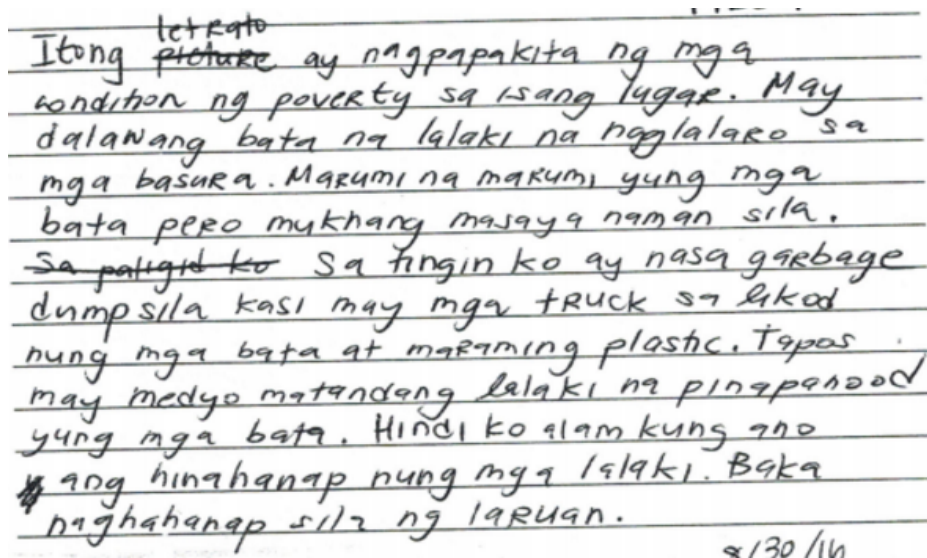 Itong letrato ay nagpapakita ng mga
condition ng poverty sa isang lugar. May
dalawang bata na lalaki na naglalaro sa
mga basura. Marumi na marumi yung mga
bata pero mukhang masaya naman sila.
Sa paligid ko Sa tingin ko ay nasa garbage
dump sila kasi may mga truck sa likod
nung mga bata at maraming plastic. Tapos
may medyo matandang lalaki na pinapanood
yung mga bata. Hindi ko alam kung ano
ang hinahanap nung mga lalaki. Baka
naghahanap sila ng laruan.
8/30/16